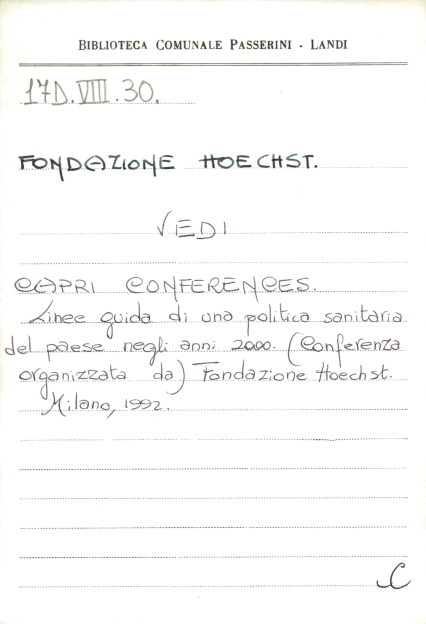 BIBLIOTECA COMUNALE PASSERINI - LANDI
17D.VIII.30.
FONDAZIONE HOECHST.
VEDI
CAPRI CONFERENCES.
Linee guida di una politica sanitaria
del paese negli anni 2000. (Conferenza
organizzata da) Fondazione Hoechst.
Milano, 1992.
C